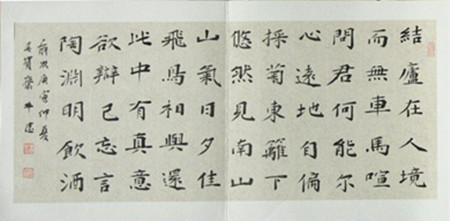 結廬在人境
而無車馬喧
問君何能尔
心遠地自偏
採菊東籬下
悠然見南山
山氣日夕佳
飛鳥相與還
此中有真意
欲辯已忘言
陶淵明飲酒
歲次庚寅仲夏